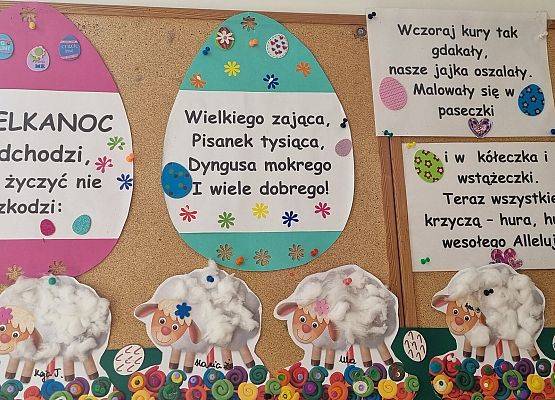 ELKANOC
dchodzi,
życzyć nie
zkodzi:
Wielkiego zająca,
Pisanek tysiąca,
Dyngusa mokrego
I wiele dobrego!
Wczoraj kury tak
gdakały,
nasze jajka oszalały.
Malowały się w
paseczki
i w kółeczka i
wstążeczki.
Teraz wszystkie
krzyczą – hura, hu
wesołego Alleluj
Kaja J.
Ula